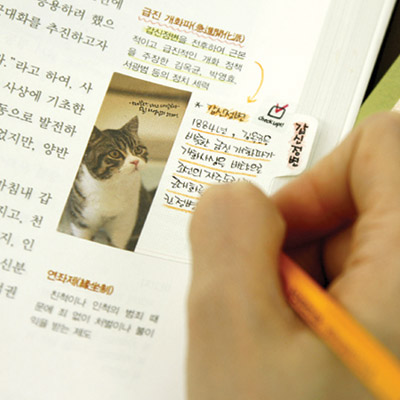 응용하려 했으
근대화를 추진하고자
"라고 하여, 사
사상에 기초한
동으로 발전하
었지만, 양반
마침내 갑
지고, 천
지, 인
신분
권
급진 개화파(急進開化派)
갑신정변을 전후하여 근본
적이고 급진적인 개화 정책
을 주장한 김옥균, 박영효,
서광범 등의 정치 세력
check up!!
갑신정변
* 갑신정변
1884년, 김옥균을
비롯한 급진 개화파가
개화사상을 바탕으로
조선의 자주독
근대화
연좌제(緣坐制)
친척이나 인척의 범죄 때
문에 죄 없이 처벌이나 불이
익을 받는 제도